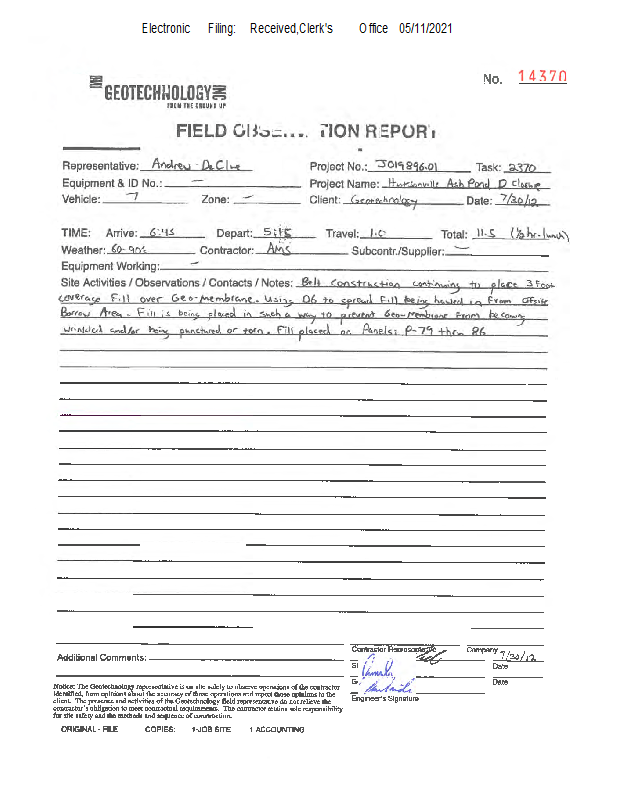 Electronic Filing: Received,Clerk's Office 05/11/2021
No. 14370
GEOTECHNOLOGY
FROM THE GROUND UP
FIELD OBSE... TION REPORT
Representative: Andrew DeClue Project No.: J019896.01 Task: 2370
Equipment & ID No.: — Project Name: Hutsonville Ash Pond D Closure
Vehicle: 7 Zone: — Client: Geotechnology Date: 7/20/12
TIME: Arrive: 6:45 Depart: 5:15 Travel: 1.0 Total: 11.5 (½ hr. lunch)
Weather: 60-90s Contractor: AMS Subcontr./Supplier: —
Equipment Working: —
Site Activities / Observations / Contacts / Notes: Belt Construction continuing to place 3 Foot
coverage Fill over Geo-Membrane. Using D6 to spread Fill being hauled in From offsite
Borrow Area. Fill is being placed in such a way to prevent Geo-Membrane From becoming
wrinkled and/or being punctured or torn. Fill placed on Panels: P-79 thru 86
Contractor Representative Company 7/20/12
Additional Comments:
Date
Date
Engineer's Signature
Notice: The Geotechnology representative is on site solely to observe operations of the contractor
identified, form opinions about the accuracy of those operations and report those opinions to the
client. The presence and activities of the Geotechnology field representative do not relieve the
contractor's obligation to meet contractual requirements. The contractor retains sole responsibility
for site safety and the methods and sequence of construction.
ORIGINAL - FILE COPIES: 1-JOB SITE 1 ACCOUNTING